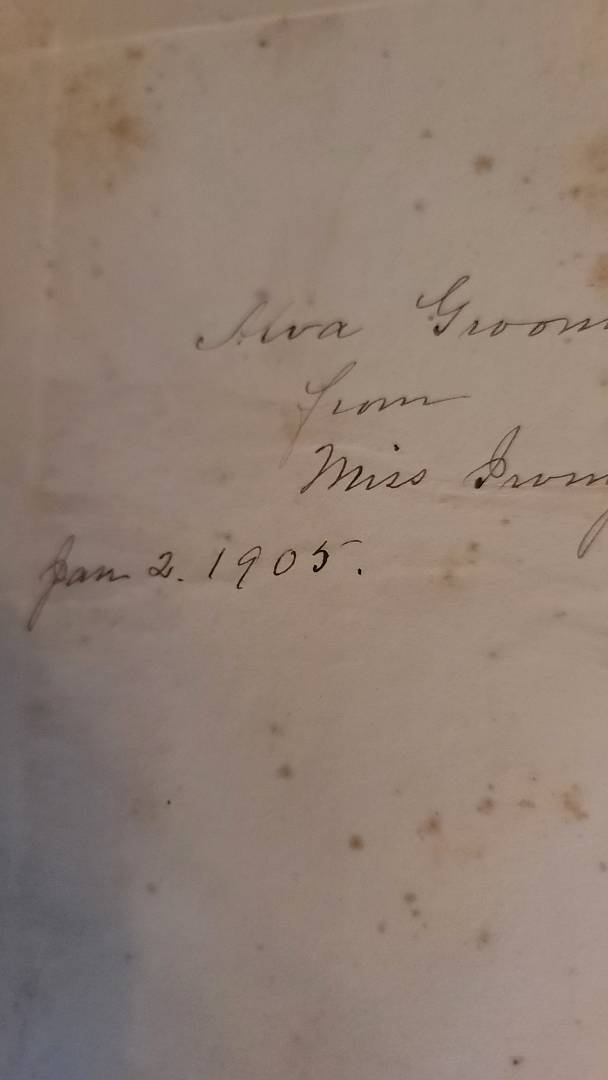 Alva Groom
from
Miss
Jan 2. 1905.